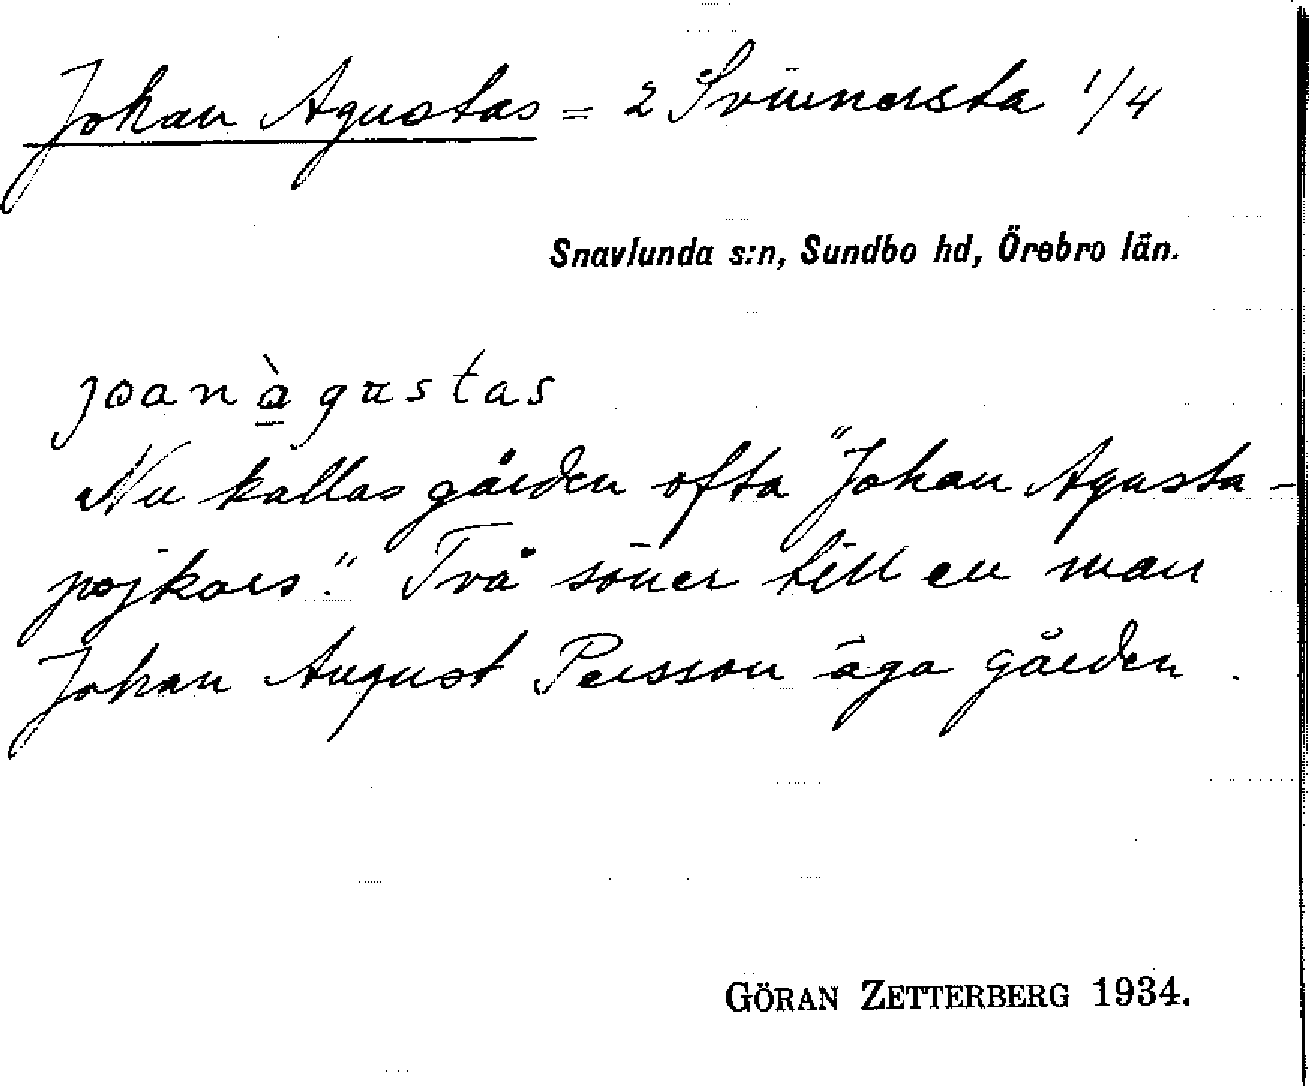 Johan Agustas = 2 Svinnersta 1/4
Snavlunda s:n, Sundbo hd, Örebro län.
joanàgustas
Nu kallas gården ofta "Johan Agusta-
pojkars". Två söner till en man
Johan August Persson äga gården.
GÖRAN ZETTERBERG 1934.